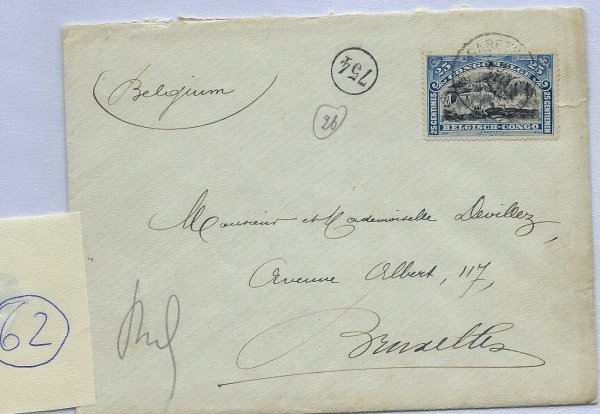 Belgium
754
26
CONGO BELGE
25 25
25 CENTIMES
25 CENTIEMEN
BELGISCH-CONGO
Monsieur et Mademoiselle Devillez,
Avenue Albert, 117,
Bruxelles
62